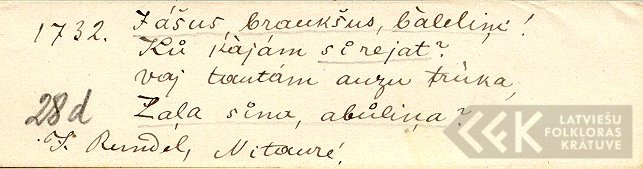 1732. Jāšus, braukšus, bāleliņi!
Ků kājām sirejat?
vaj tautām auzu trūka,
28d Zaļa sina, abůliņa?
J. Rundel, Nītaurē.
LATVIEŠU
FOLKLORAS
KRĀTUVE